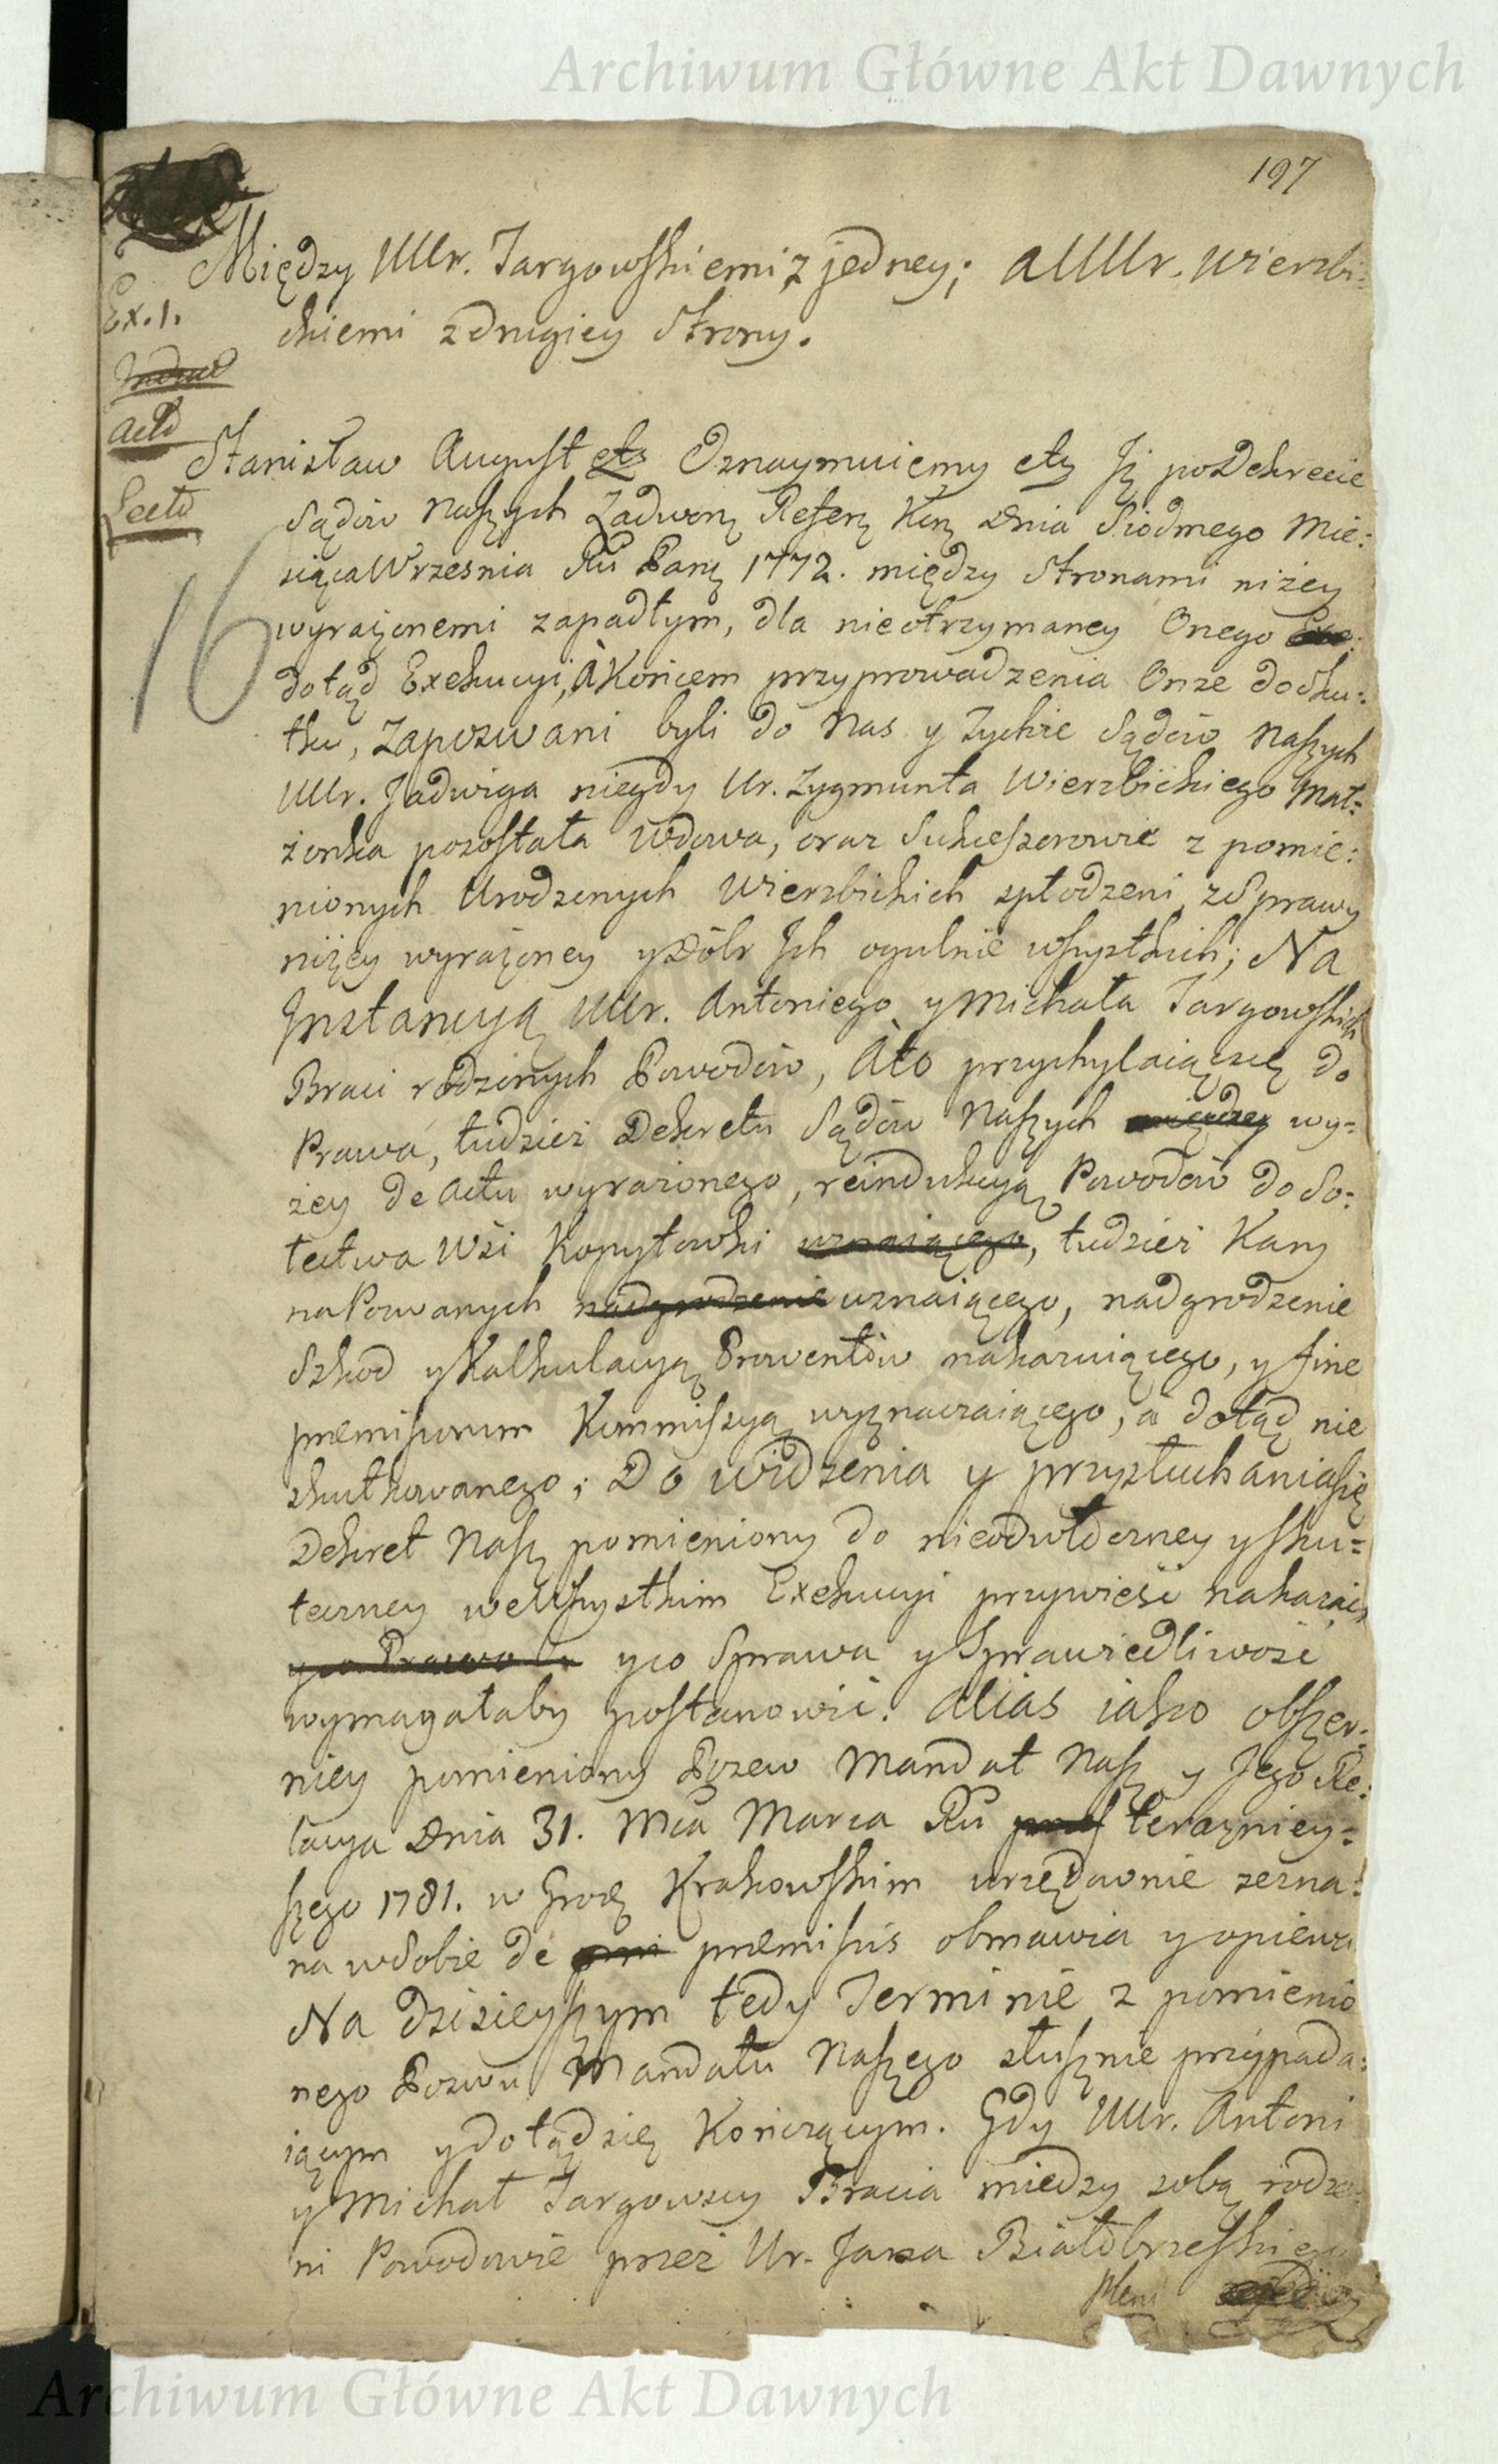 Archiwum Główne Akt Dawnych
197
Między UUr. Targowskiemi z jedney; a UUr. Wierzbi:
ckiemi z drugiey Strony.
Ex. 1.
Actd
Lectd
16
Stanisław August etc Oznaymuiemy etc Iż po Dekrecie
Sądów Naszych Zadwornych Referen Kor Dnia Siodmego Mie:
siąca Wrzesnia Ru Pans 1772. między Stronami niżey
wyrażonemi zapadłym, dla nieotrzymaney Onego
dotąd Exekucyi, à Końcem przyprowadzenia Onże do sku:
tku, Zapozwani byli do Nas y Tychże Sądów Naszych
UUr. Jadwiga niegdy Ur. Zygmunta Wierzbickiego Mał=
żonka pozostała Wdowa, oraz Sukcessorowie z pomie:
nionych Urodzonych Wierzbickich spłodzeni, z Sprawy
niżey wyrażoney y Dóbr Ich ogulnie wszystkich; Na
Instancyą UUr. Antoniego y Michała Targowskich
Braci rodzonych Powodów, A to przychylaiąc się do
Prawa, tudzież Dekretu Sądów Naszych wy=
żey de Actu wyrażonego, reindukcyą Powodów do So:
łectwa Wsi Kopytowki, tudzież Kary
na Pozwanych uznaiącego, nadgrodzenie
Szkod y Kalkulacyą Prowentów nakazuiącego, y fine
præmissorum Kommissyą wyznaczaiącego, a dotąd nie
skutkowanego; Do widzenia y przysłuchania się
Dekret Nasz pomieniony do nieodwłoczney y sku=
teczney we wszystkim Exekucyi przywieść nakazać,
y co Sprawa y Sprawiedliwość
wymagałaby postanowić. Alias iako obszer:
niey pomieniony Pozew Mandat Nasz y Jego Re:
lacya Dnia 31. Mca Marca Ru teraźniey=
szego 1781. w Grodz Krakowskim urzędownie zezna:
na w Sobie de præmissis obmawia y opiewa
Na dzisieyszym tedy Terminie z pomienio
nego Pozwu Mandatu Naszego słusznie przypada:
iącym y dotąd się Kończącym. Gdy UUr. Antoni
y Michał Targowscy Bracia miedzy sobą rodzo
ni Powodowie przez Ur. Jana Białobrzeskiego
Pleni
Archiwum Główne Akt Dawnych